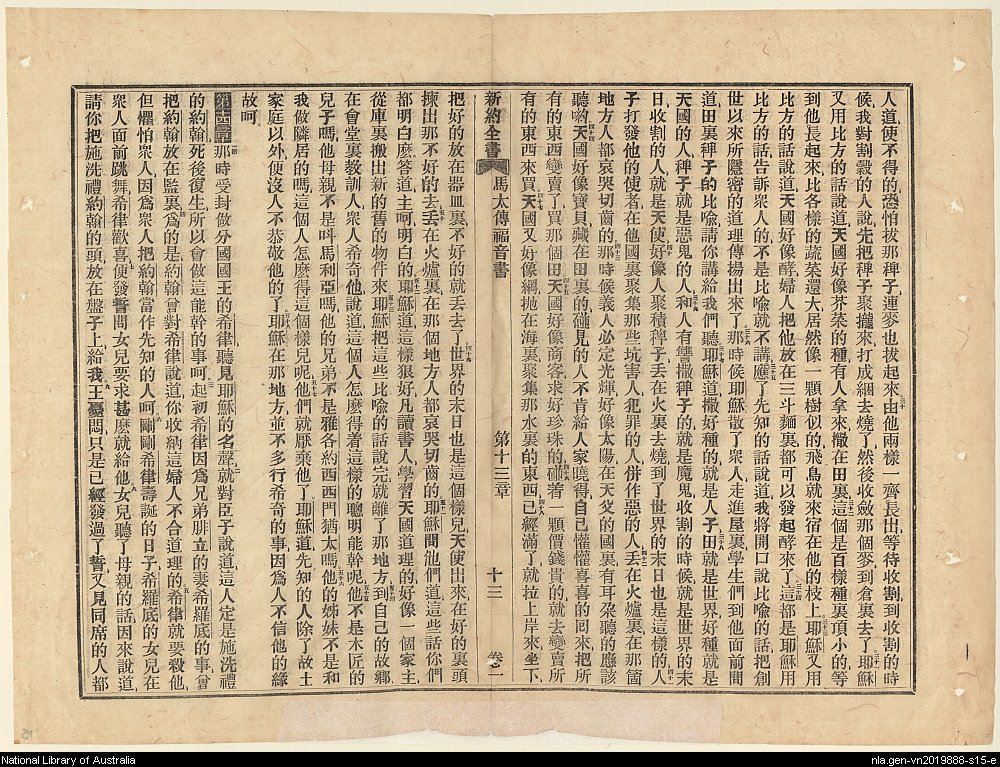 人道使不得的恐怕拔那稗子連麥也拔起來由他兩樣一齊長出等待收割到收割的時
候我對割穀的人說先把稗子聚攏來打成綑去燒了然後收斂那個麥到倉裏去了耶穌
又用比方的話說道天國好像芥菜的種有人拿來撒在田裏這個是百樣種裏頂小的等
到他長起來比各樣的蔬菜還大居然像一顆樹似的飛鳥就來宿在他的枝上耶穌又用
比方的話說道天國好像酵婦人把他放在三斗麵裏都可以發起酵來了這都是耶穌用
比方的話告訴衆人的不是比喩就不講應了先知的話說道我將開口說比喩的話把創
世以來所隱密的道理傳揚出來了那時候耶穌散了衆人走進屋裏學生們到他面前問
道田裏稗子的比喩請你講給我們聽耶穌道撒好種的就是人子田就是世界好種就是
天國的人稗子就是惡鬼的人和人有讐撒稗子的就是魔鬼收割的時候就是世界的末
日收割的人就是天使好像人聚積稗子丢在火裏去燒到了世界的末日也是這樣的人
子打發他的使者在他國裏聚集那些坑害人犯罪的人併作惡的人丢在火爐裏在那個
地方人都哀哭切齒的那時候義人必定光輝好像太陽在天父的國裏有耳朶聽的應該
聽喲天國好像寶貝藏在田裏的碰見的人不肯給人家曉得自己懽懽喜喜的回來把所
有的東西變賣了買那個田天國好像商客求好珍珠的碰着一顆價錢貴的就去變賣所
有的東西來買天國又好像網拋在海裏聚集那水裏的東西已經滿了就拉上岸來坐下
新約全書 馬太傳福音書 第十三章 十三 卷一
把好的放在器皿裏不好的就丢去了世界的末日也是這個樣兒天使出來在好的裏頭
揀出那不好的去丢在火爐裏在那個地方人都哀哭切齒的耶穌問他們道這些話你們
都明白麽答道主呵明白的耶穌道這樣狠好凡讀書人學習天國道理的好像一個家主
從庫裏搬出新的舊的物件來耶穌把這些比喩的話說完就離了那地方到自己的故鄕
在會堂裏敎訓人衆人希奇他說道這個人怎麽得着這樣的聰明能幹呢他不是木匠的
兒子嗎他母親不是呌馬利亞嗎他的兄弟不是雅各約西西門猶太嗎他的姊妹不是和
我做隣居的嗎這個人怎麽得這個樣兒呢他們就厭棄他了耶穌道先知的人除了故土
家庭以外便沒人不恭敬他的了耶穌在那地方並不多行希奇的事因爲人不信他的緣
故呵
第十四章那時受封做分國國王的希律聽見耶穌的名聲就對臣子說道這人定是施洗禮
的約翰死後復生所以會做這能幹的事呵起初希律因爲兄弟腓立的妻希羅底的事曾
把約翰放在監裏爲的是約翰曾對希律說道你收納這婦人不合道理的希律就要殺他
但懼怕衆人因爲衆人把約翰當作先知的人呵剛剛希律壽誕的日子希羅底的女兒在
衆人面前跳舞希律歡喜便發誓問女兒要求甚麽就給他女兒聽了母親的話因來說道
請你把施洗禮約翰的頭放在盤子上給我王憂悶只是已經發過了誓又見同席的人都
National Library of Australia
nla.gen-vn2019888-s15-e